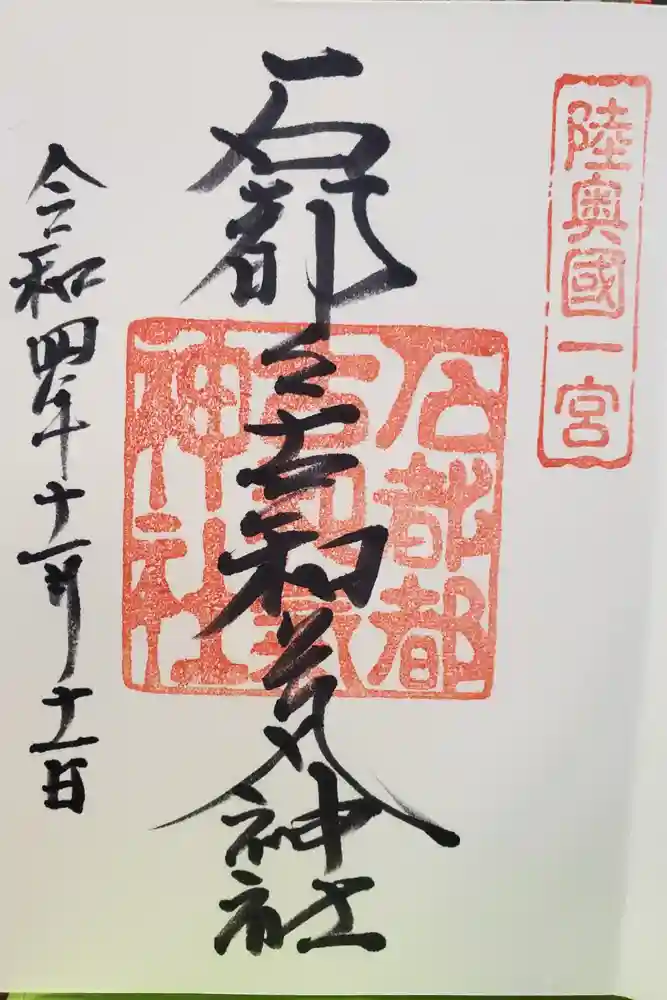 陸奥國一宮
石都々古和气神社
石都都
古和氣
神社
令和四年十一月十一日